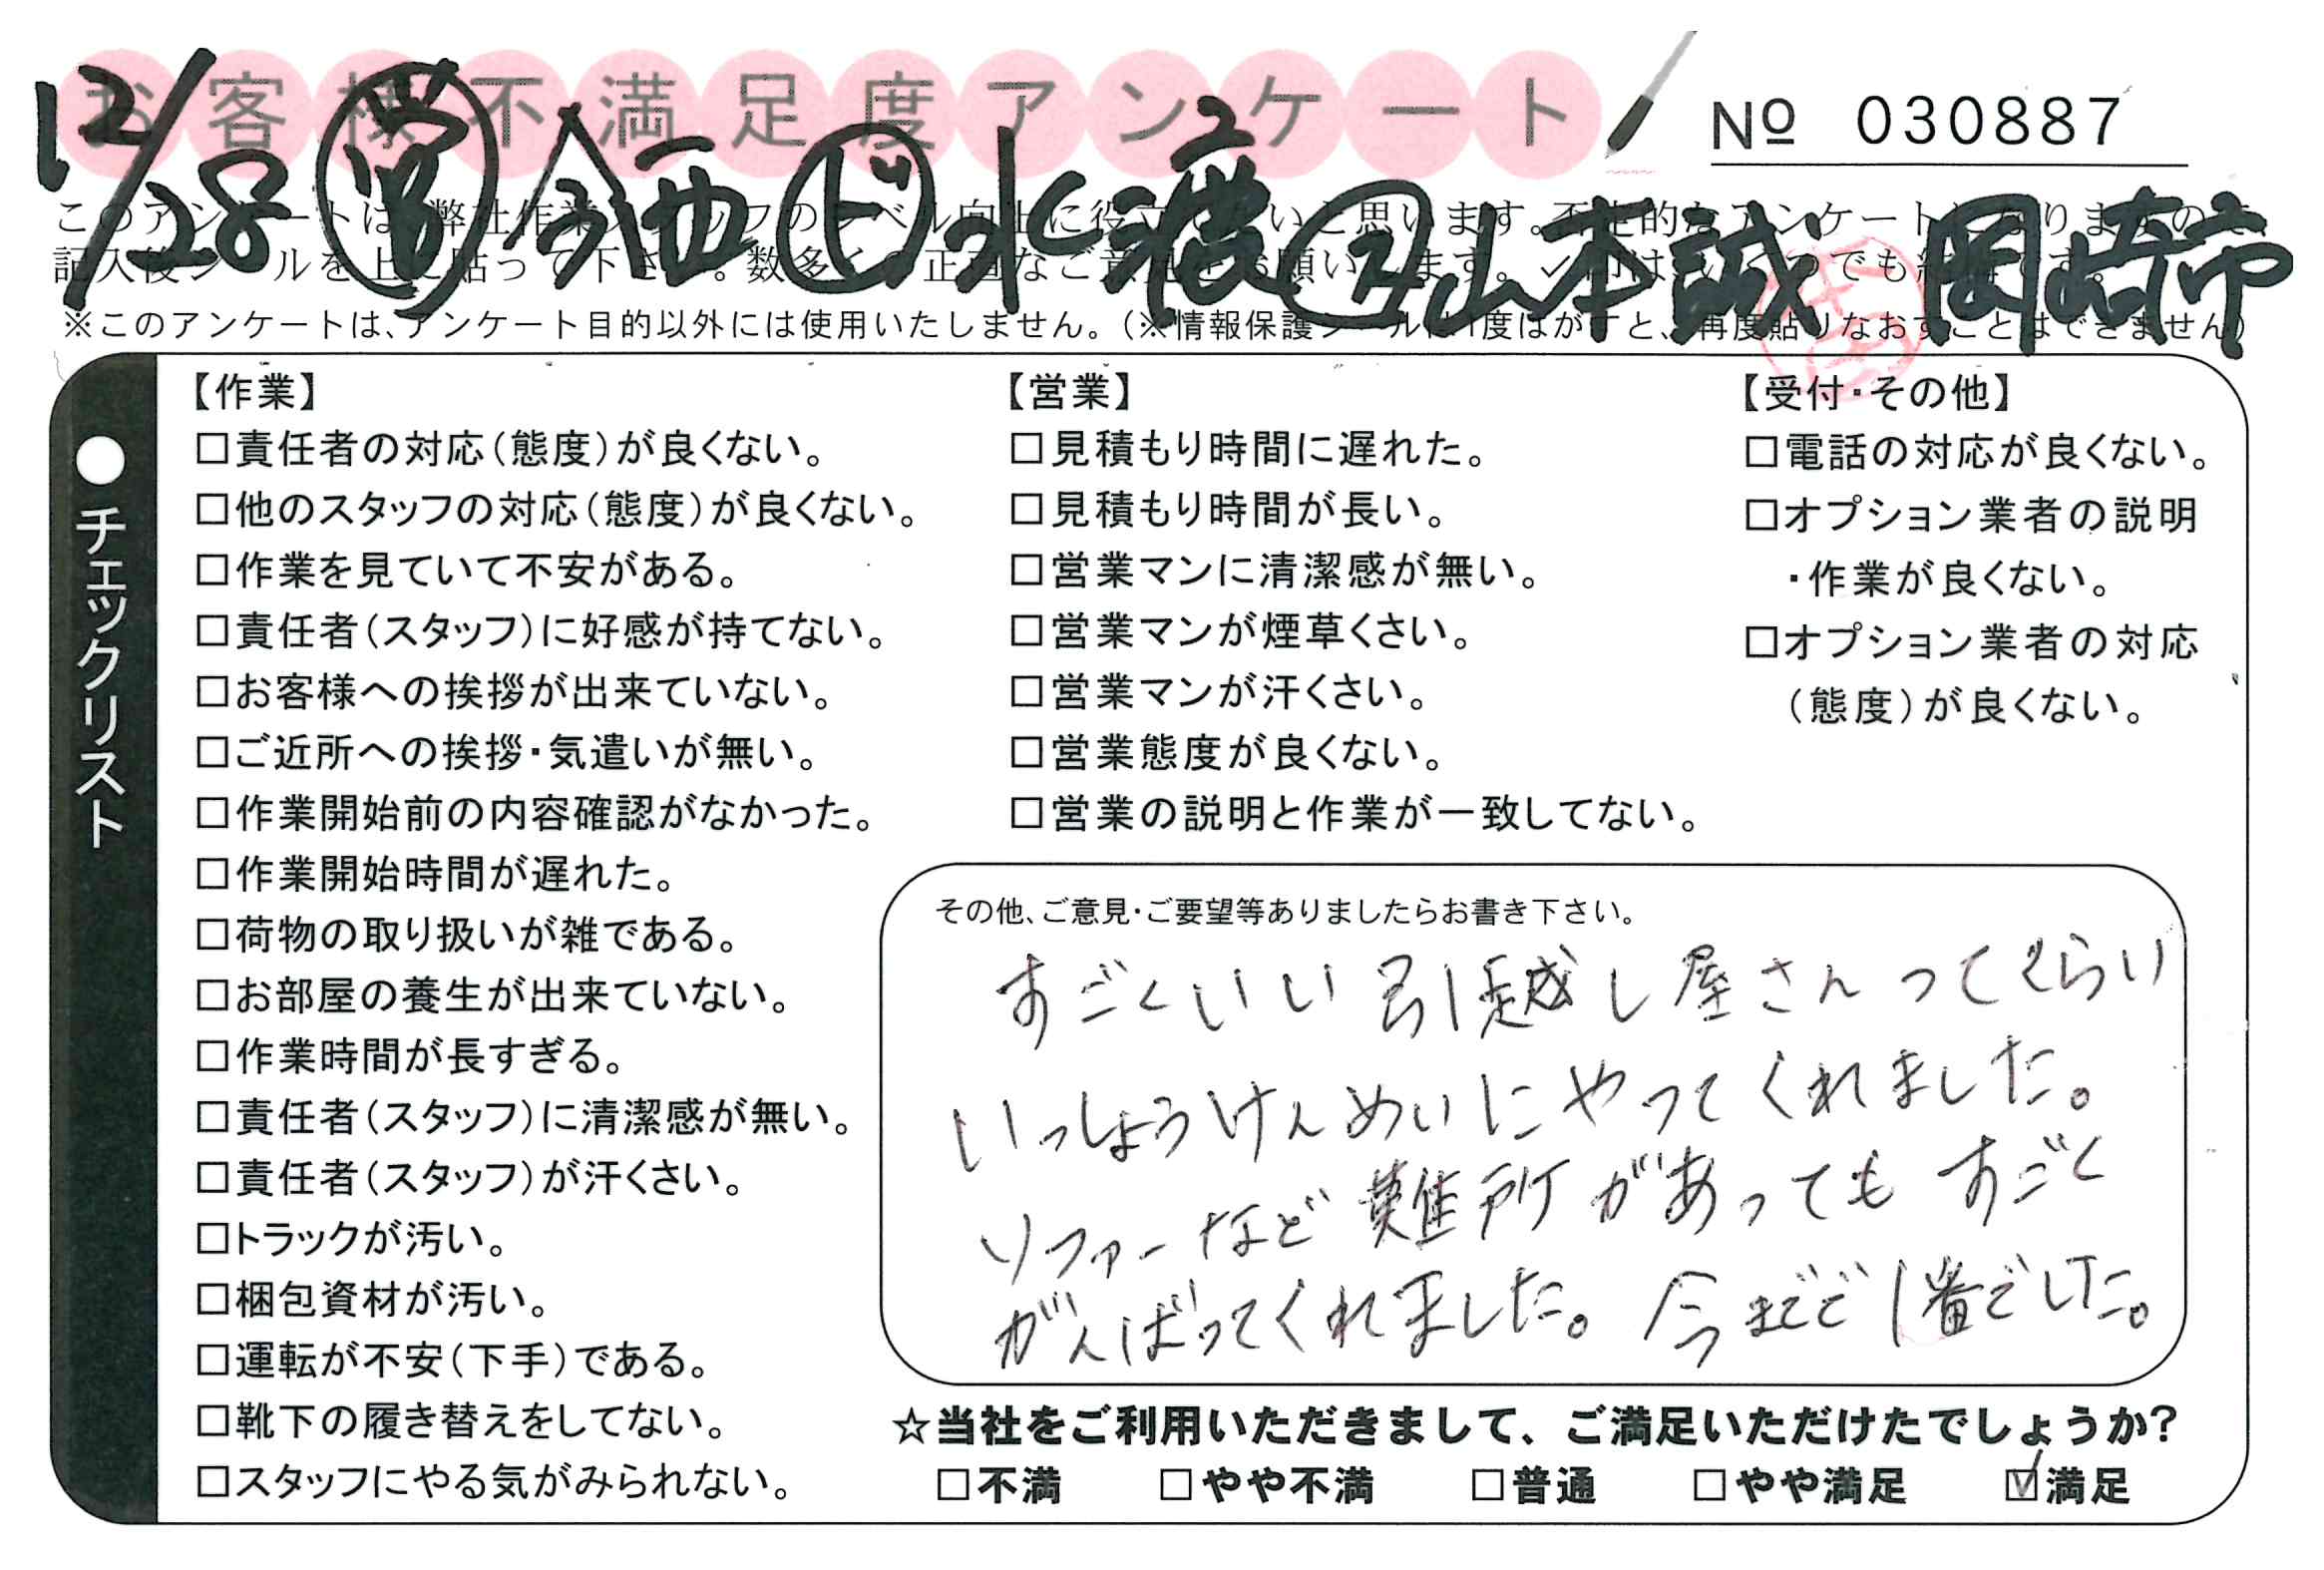 お客様不満足度アンケート
№ 030887
12/28 営 今西 ビ 水渡 2 ス 山本誠 岡崎市
このアンケートは、弊社作業スタッフのレベル向上に役立てたいと思います。不定期なアンケート
記入後シールを上に貼って下さい。数多くの正直なご意見をお願いします。✓印はいくつでも結構です。
※このアンケートは、アンケート目的以外には使用いたしません。(※情報保護シールは1度はがすと、再度貼りなおすことはできません)
●チェックリスト
【作業】
□責任者の対応(態度)が良くない。
□他のスタッフの対応(態度)が良くない。
□作業を見ていて不安がある。
□責任者(スタッフ)に好感が持てない。
□お客様への挨拶が出来ていない。
□ご近所への挨拶・気遣いが無い。
□作業開始前の内容確認がなかった。
□作業開始時間が遅れた。
□荷物の取り扱いが雑である。
□お部屋の養生が出来ていない。
□作業時間が長すぎる。
□責任者(スタッフ)に清潔感が無い。
□責任者(スタッフ)が汗くさい。
□トラックが汚い。
□梱包資材が汚い。
□運転が不安(下手)である。
□靴下の履き替えをしてない。
□スタッフにやる気がみられない。
【営業】
□見積もり時間に遅れた。
□見積もり時間が長い。
□営業マンに清潔感が無い。
□営業マンが煙草くさい。
□営業マンが汗くさい。
□営業態度が良くない。
□営業の説明と作業が一致してない。
【受付・その他】
□電話の対応が良くない。
□オプション業者の説明
・作業が良くない。
□オプション業者の対応
(態度)が良くない。
その他、ご意見・ご要望等ありましたらお書き下さい。
すごくいい引越し屋さんってぐらい
いっしょうけんめいにやってくれました。
ソファーなど難所があってもすごく
がんばってくれました。今までで1番でした。
☆当社をご利用いただきまして、ご満足いただけたでしょうか?
□不満 □やや不満 □普通 □やや満足 ☑満足